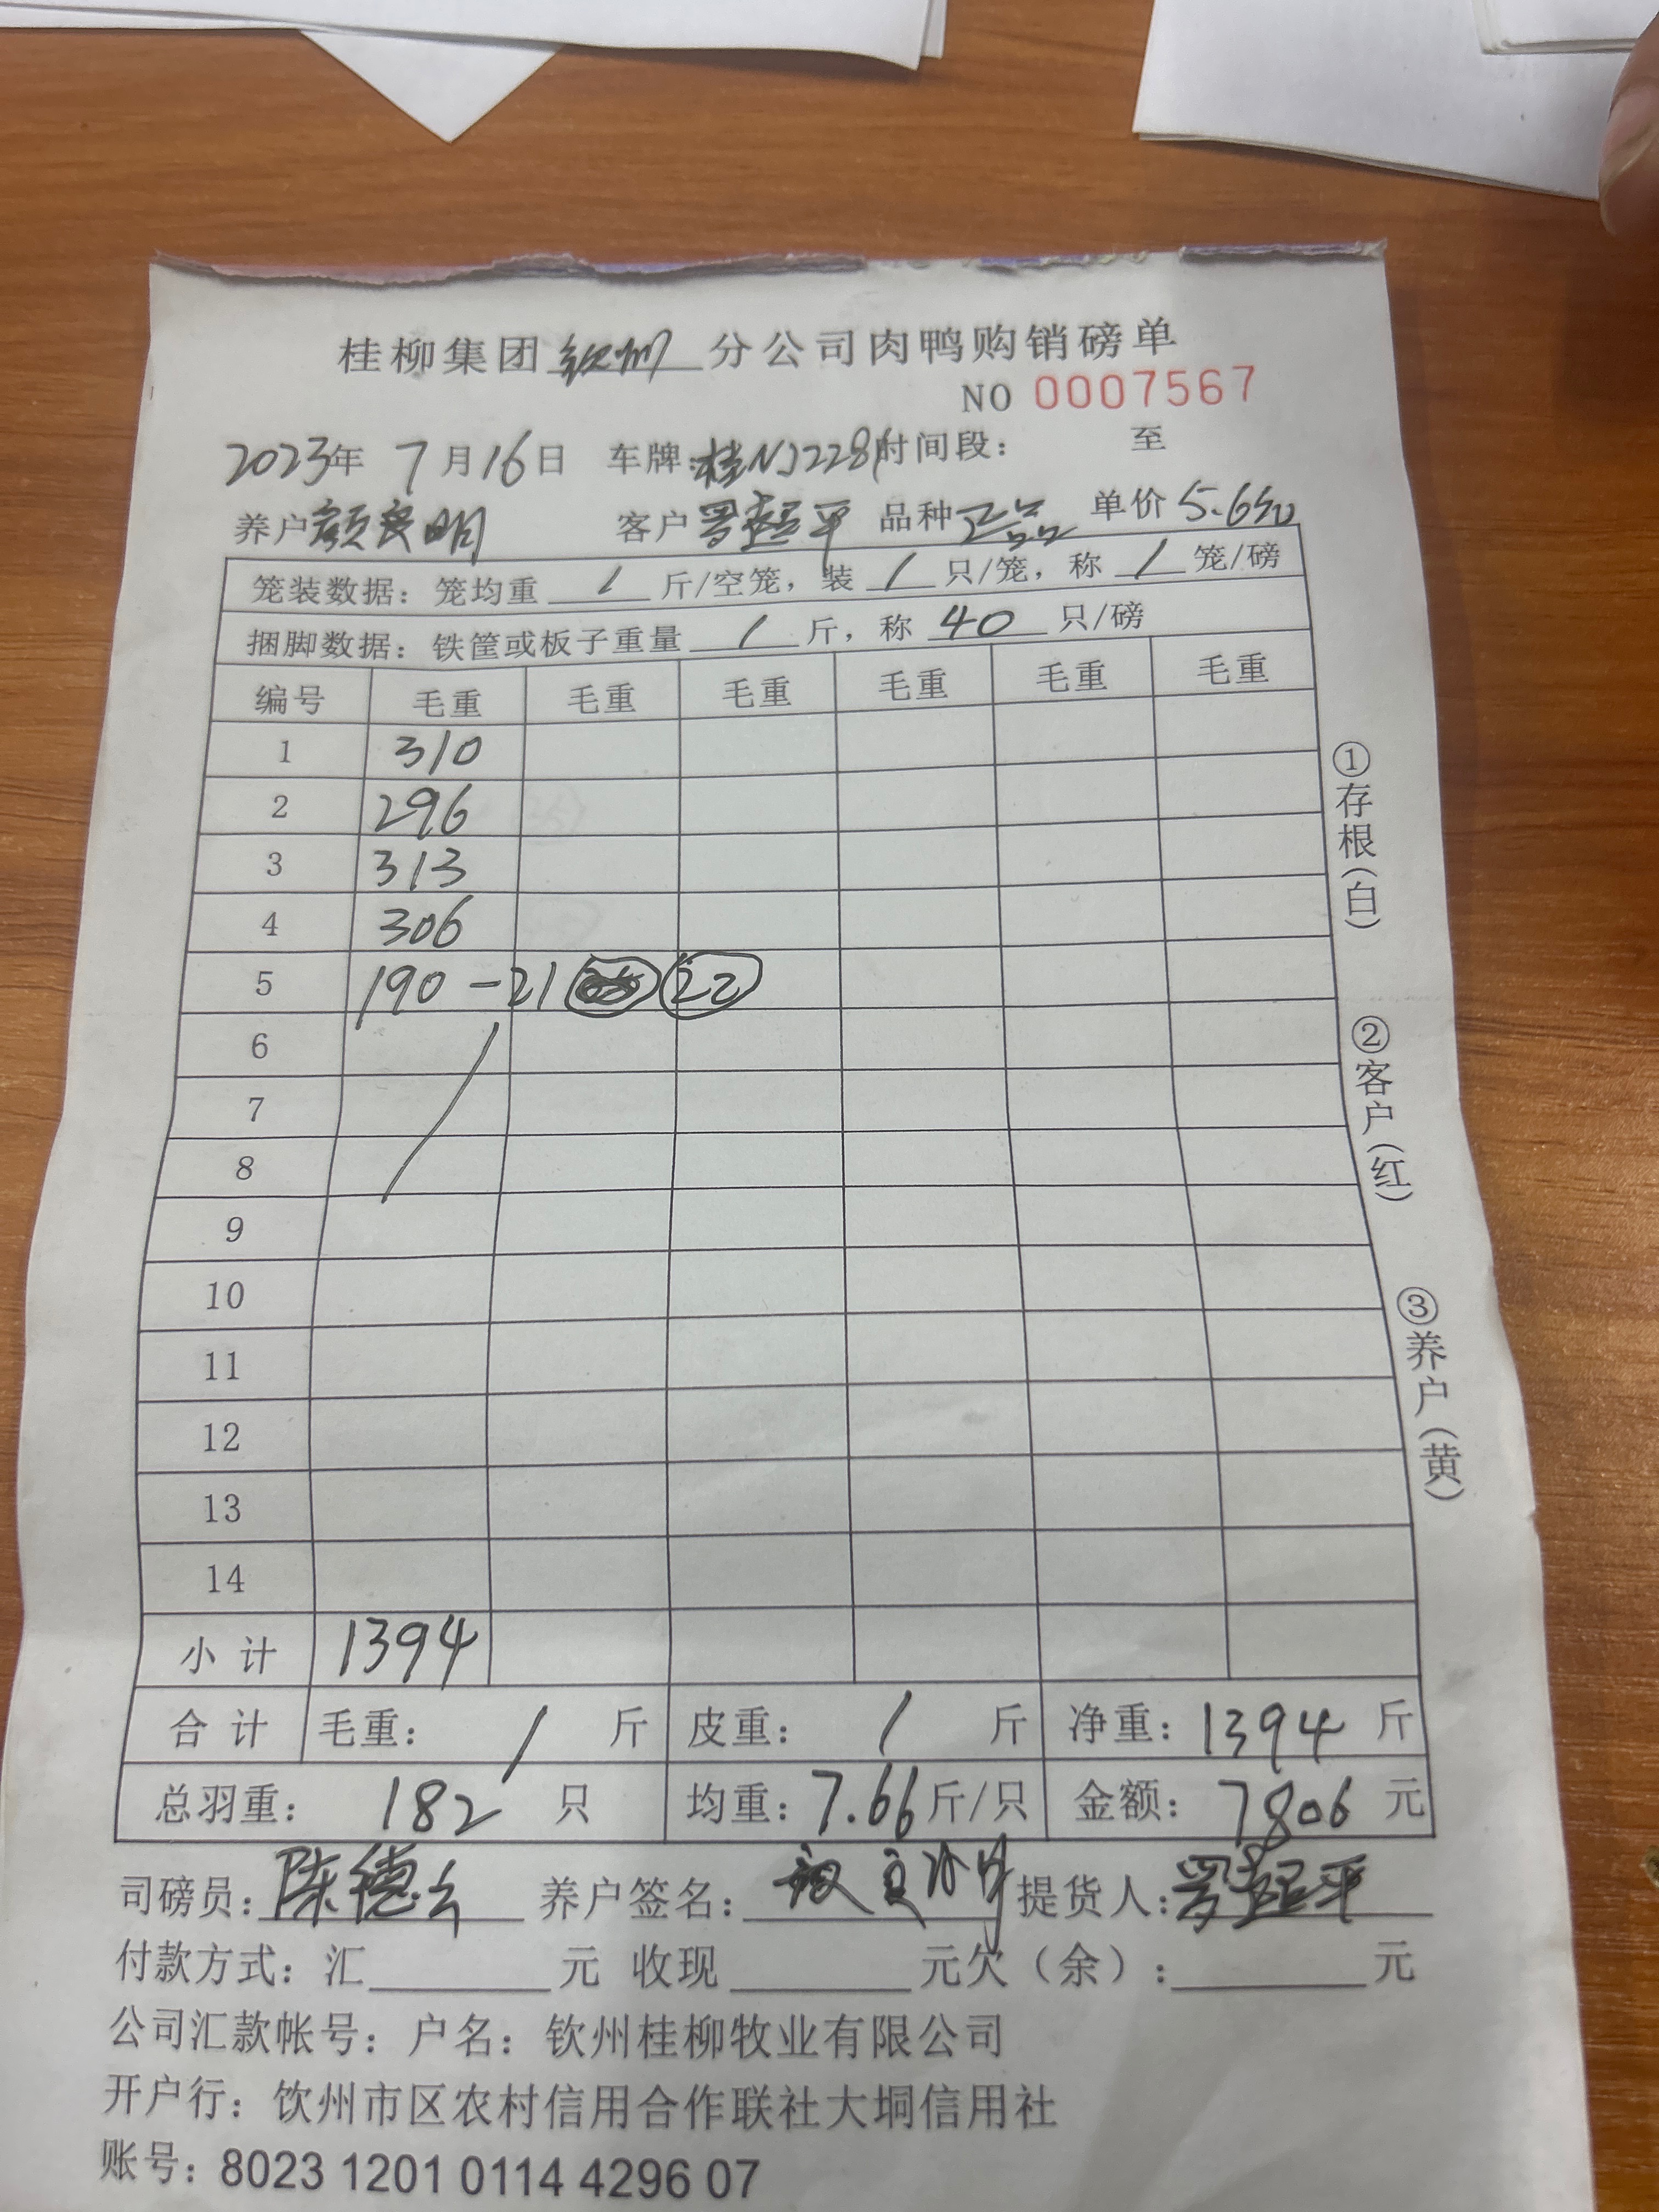 桂柳集团钦州分公司肉鸭购销磅单
NO 0007567
2023年 7月16日 车牌:桂NJ228 时间段: 至
养户颜良明 客户罗超平 品种正品 单价5.650
笼装数据: 笼均重 / 斤/空笼, 装 / 只/笼, 称 / 笼/磅
捆脚数据: 铁筐或板子重量 / 斤, 称 40 只/磅
编号 毛重 毛重 毛重 毛重 毛重 毛重
1 310
2 296
3 313
4 306
5 190 -21 22
6
7
8
9
10
11
12
13
14
小计 1394
合计 毛重: / 斤 皮重: / 斤 净重: 1394 斤
总羽重: 182 只 均重: 7.66斤/只 金额: 7806 元
司磅员: 陈德 养户签名: 提货人: 罗超平
付款方式: 汇 元 收现 元欠(余): 元
公司汇款帐号: 户名: 钦州桂柳牧业有限公司
开户行: 钦州市区农村信用合作联社大垌信用社
账号: 8023 1201 0114 4296 07
①存根(白)
②客户(红)
③养户(黄)